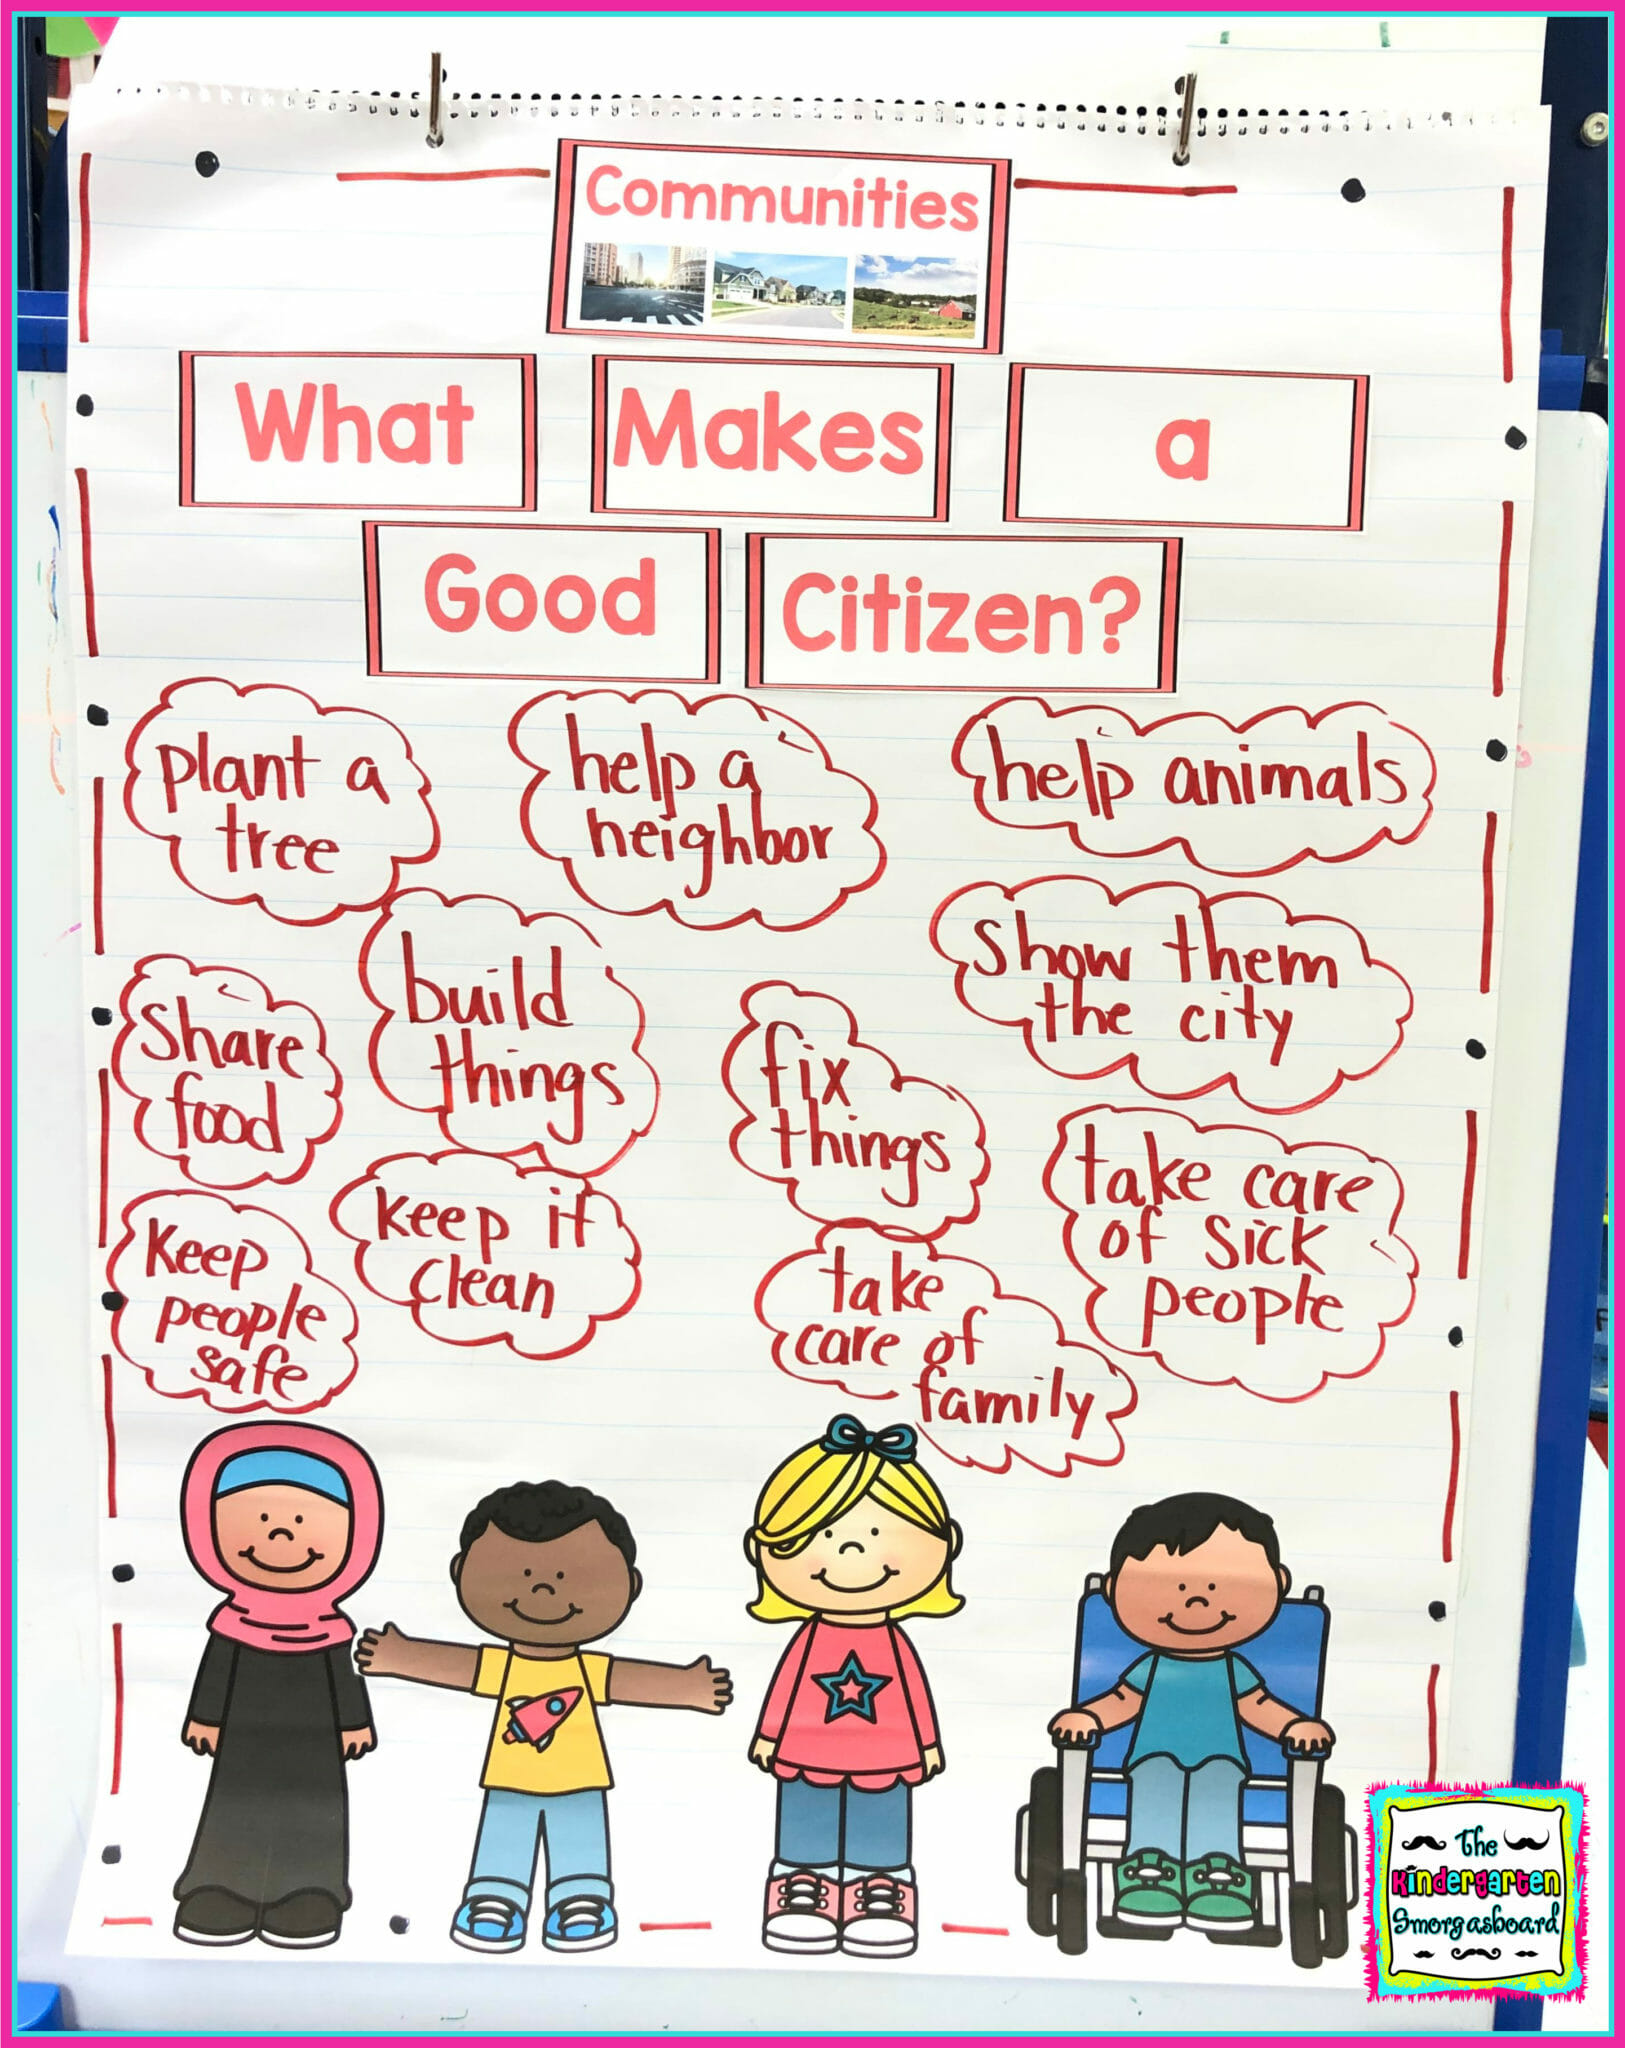 Communities
What Makes a
Good Citizen?
plant a
tree
help a
neighbor
help animals
share
food
build
things
fix
things
show them
the city
keep
people
safe
keep it
clean
take
care of
family
take care
of sick
people
The
Kindergarten
Smorgasboard